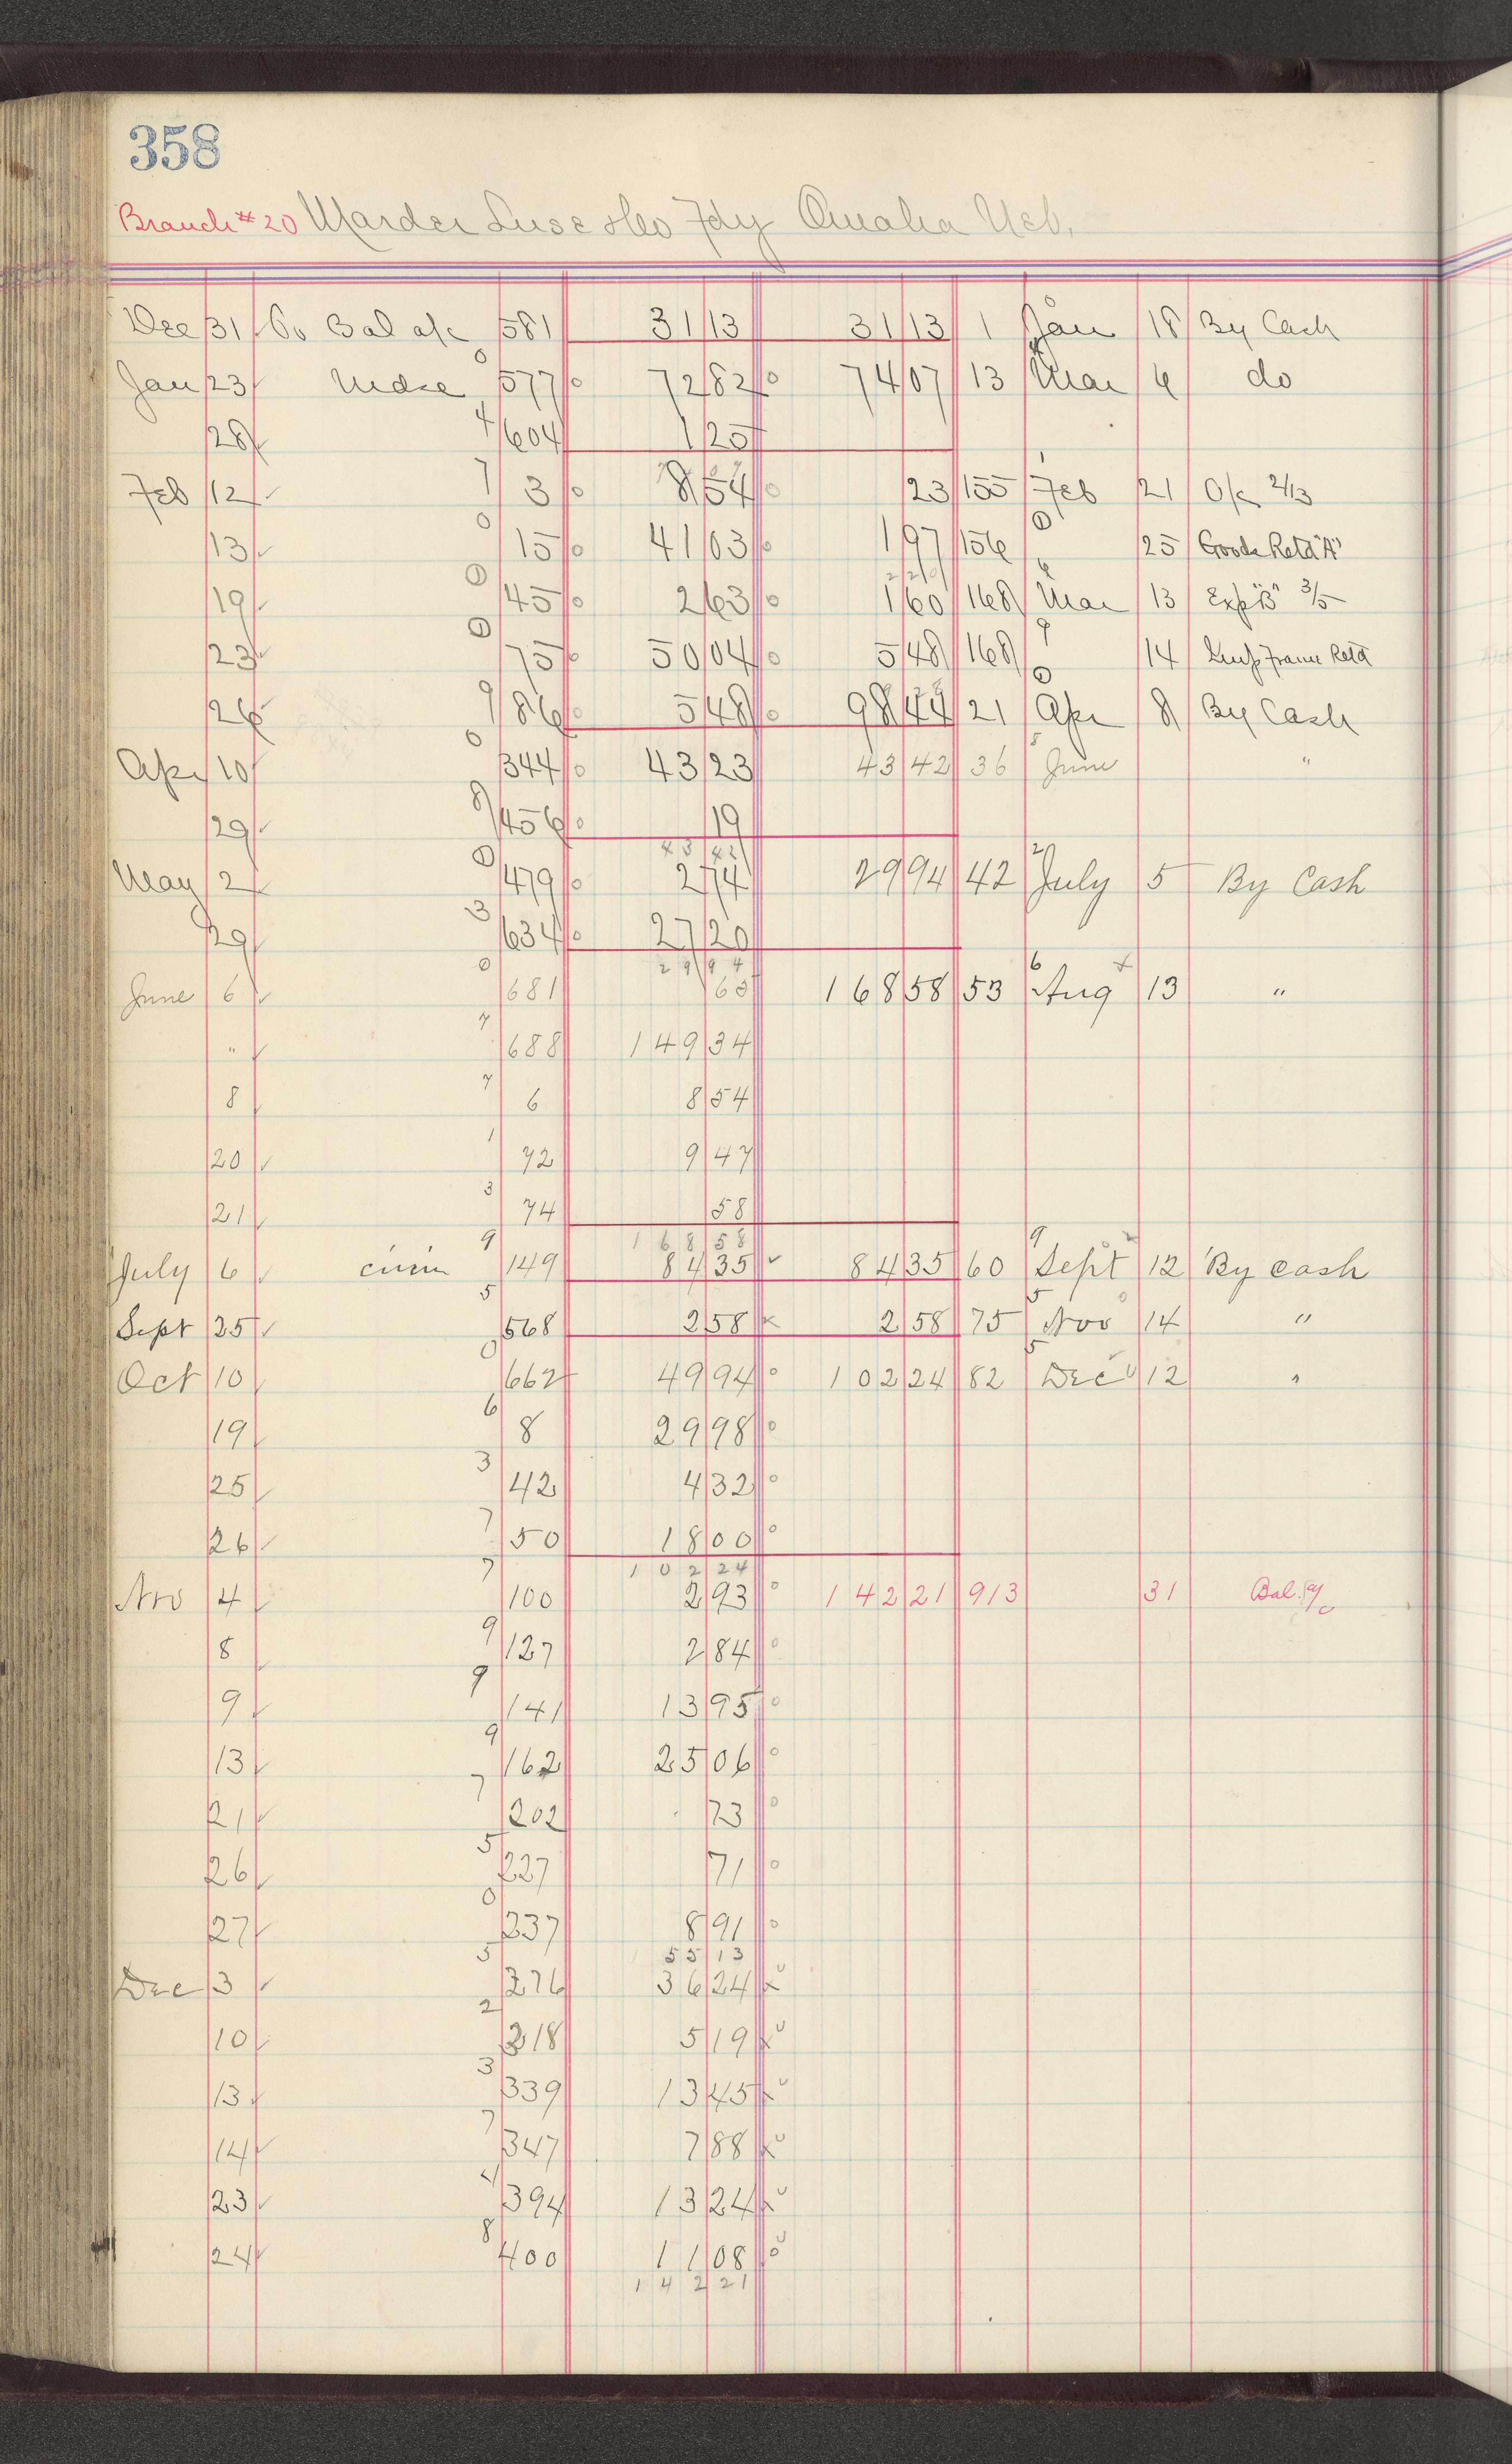 358
Branch #20 Marder Luse & Co Fdy Omaha Neb.
Dec 31 To Bal a/c 581 31 13 31 13 1 Jan 18 By Cash
Jan 23 Mdse 0 577 72 82 74 07 13 Mar 6 do
28 4 604 1 25
Feb 12 7 3 8 54 23 155 Feb 21 O/c 2/13
13 0 15 41 03 1 97 156 " 25 Goods Retd "A"
19 0 45 2 63 1 60 168 Mar 13 Exp "B" 3/5
23 0 75 50 04 5 48 168 14 Frame Retd
26 9 86 5 48 98 44 21 Apr 8 By Cash
Apr 10 0 344 43 23 43 42 36 June "
29 8 456 19
43 42
May 2 0 479 2 74 29 94 42 July 5 By Cash
29 3 634 27 20
29 94
June 6 0 681 168 58 53 Aug 13 "
" 7 688 149 34
8 7 6 8 54
20 1 72 9 47
21 3 74 58
168 58
July 6 9 149 84 35 84 35 60 Sept 12 By cash
Sept 25 5 568 2 58 2 58 75 Nov 14 "
Oct 10 0 662 49 94 102 24 82 Dec 12 "
19 6 8 29 98
25 3 42 4 32
26 7 50 18 00
102 24
Nov 4 7 100 2 93 142 21 913 31 Bal a/c
8 9 127 2 84
9 9 141 13 95
13 9 162 25 06
21 7 202 73
26 5 227 71
27 0 237 8 91
55 13
Dec 3 5 276 36 24
10 2 318 5 19
13 3 339 13 45
14 7 347 7 88
23 4 394 13 24
24 8 400 11 08
142 21